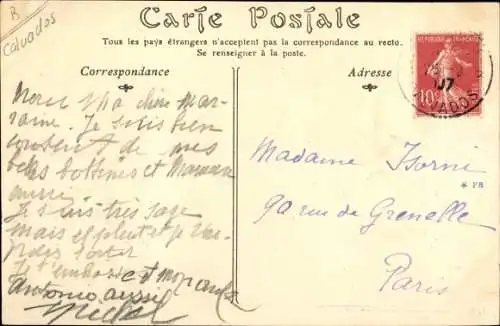 B
Calvados
Carte Postale
Tous les pays étrangers n'acceptent pas la correspondance au recto.
Se renseigner à la poste.
Correspondance
Adresse
REPUBLIQUE FRANÇAISE
10c
07
CALVADOS
Merci ma chère Mar-
raine. Je suis bien
content de mes
bottines et Maman
aussi
Je suis très sage
mais il pleut et je
pas sortir
Je t'embrasse et mon
Antonio aussi
Madame Isorni
90 rue de Grenelle
* PB
Paris